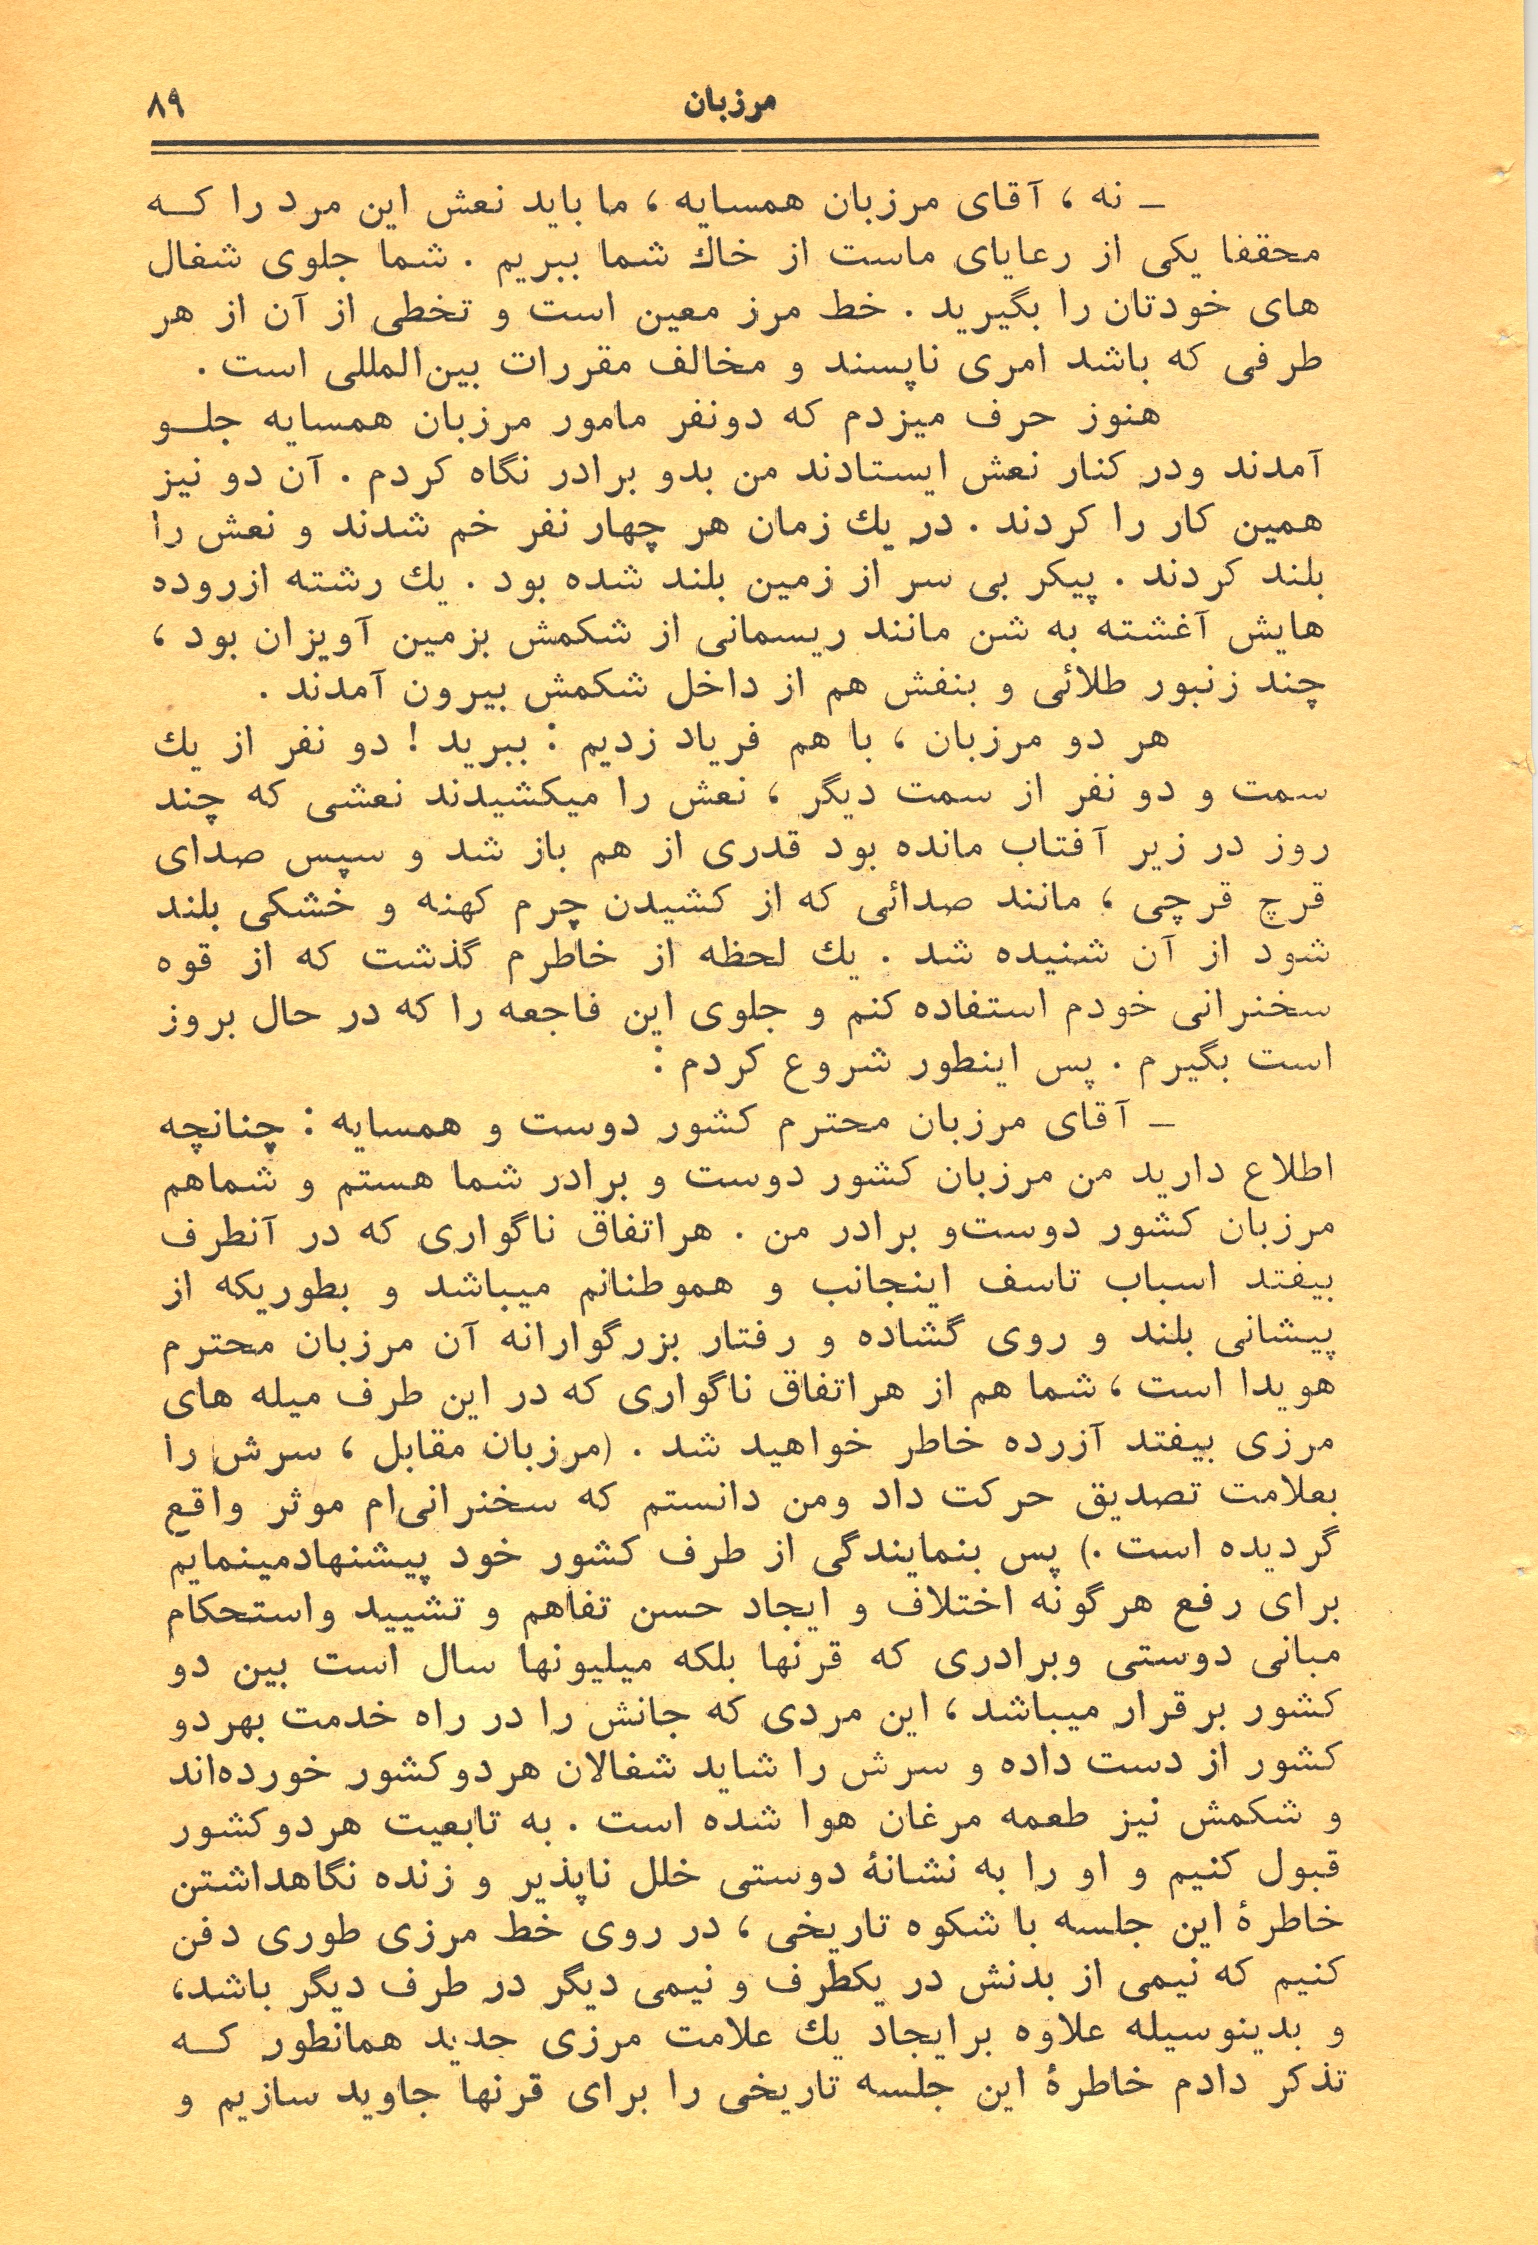 مرزبان ۸۹
ـ نه ، آقای مرزبان همسایه ، ما باید نعش این مرد را کـــه
محققا یکی از رعایای ماست از خاك شما ببریم . شما جلوی شغال
های خودتان را بگیرید . خط مرز معین است و تخطی از آن از هر
طرفی که باشد امری ناپسند و مخالف مقررات بین‌المللی است .
هنوز حرف میزدم که دونفر مامور مرزبان همسایه جلـــو
آمدند ودر کنار نعش ایستادند من بدو برادر نگاه کردم . آن دو نیز
همین کار را کردند . در یك زمان هر چهار نفر خم شدند و نعش را
بلند کردند . پیکر بی سر از زمین بلند شده بود . یك رشته ازروده
هایش آغشته به شن مانند ریسمانی از شکمش بزمین آویزان بود ،
چند زنبور طلائی و بنفش هم از داخل شکمش بیرون آمدند .
هر دو مرزبان ، با هم فریاد زدیم : ببرید ! دو نفر از یك
سمت و دو نفر از سمت دیگر ، نعش را میکشیدند نعشی که چند
روز در زیر آفتاب مانده بود قدری از هم باز شد و سپس صدای
قرچ قرچی ، مانند صدائی که از کشیدن چرم کهنه و خشکی بلند
شود از آن شنیده شد . یك لحظه از خاطرم گذشت که از قوه
سخنرانی خودم استفاده کنم و جلوی این فاجعه را که در حال بروز
است بگیرم . پس اینطور شروع کردم :
ـ آقای مرزبان محترم کشور دوست و همسایه : چنانچه
اطلاع دارید من مرزبان کشور دوست و برادر شما هستم و شماهم
مرزبان کشور دوست‌و برادر من . هراتفاق ناگواری که در آنطرف
بیفتد اسباب تاسف اینجانب و هموطنانم میباشد و بطوریکه از
پیشانی بلند و روی گشاده و رفتار بزرگوارانه آن مرزبان محترم
هویدا است ، شما هم از هراتفاق ناگواری که در این طرف میله های
مرزی بیفتد آزرده خاطر خواهید شد . (مرزبان مقابل ، سرش را
بعلامت تصدیق حرکت داد ومن دانستم که سخنرانی‌ام موثر واقع
گردیده است .) پس بنمایندگی از طرف کشور خود پیشنهادمینمایم
برای رفع هرگونه اختلاف و ایجاد حسن تفاهم و تشیید واستحکام
مبانی دوستی وبرادری که قرنها بلکه میلیونها سال است بین دو
کشور برقرار میباشد ، این مردی که جانش را در راه خدمت بهردو
کشور از دست داده و سرش را شاید شغالان هردوکشور خورده‌اند
و شکمش نیز طعمه مرغان هوا شده است . به تابعیت هردوکشور
قبول کنیم و او را به نشانهٔ دوستی خلل ناپذیر و زنده نگاهداشتن
خاطرهٔ این جلسه با شکوه تاریخی ، در روی خط مرزی طوری دفن
کنیم که نیمی از بدنش در یکطرف و نیمی دیگر در طرف دیگر باشد،
و بدینوسیله علاوه برایجاد یك علامت مرزی جدید همانطور کـــه
تذکر دادم خاطرهٔ این جلسه تاریخی را برای قرنها جاوید سازیم و